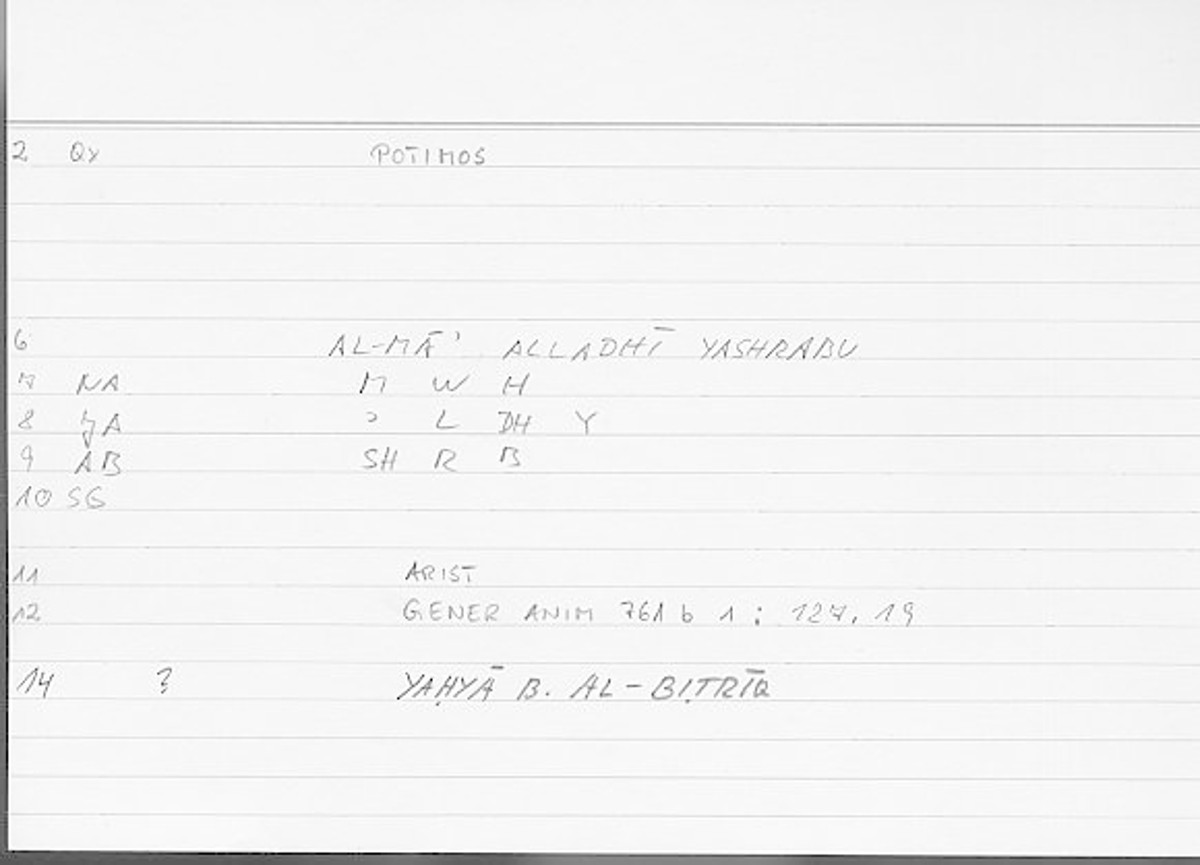 2 QY POTIMOS
6 AL-MĀʾ ALLADHĪ YASHRABU
7 NA M W H
8 JA ʾ L DH Y
9 AB SH R B
10 SG
11 ARIST
12 GENER ANIM 761 b 1 : 127, 19
14 ? YAḤYĀ B. AL-BIṬRĪQ